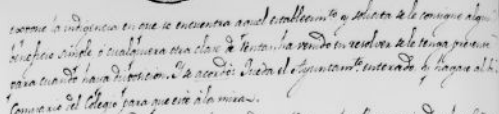 expone la indigencia en que se encuentra aquel establecimto. y solicita se le consigne algun
beneficio simple ó cualquiera otra clase de renta ha venido en resolver se le tenga presente
para cuando haya disposicion. Y se acordó: Queda el Ayuntamto. enterado, y hagase al
Comisario del Colegio para que esté á la mira.